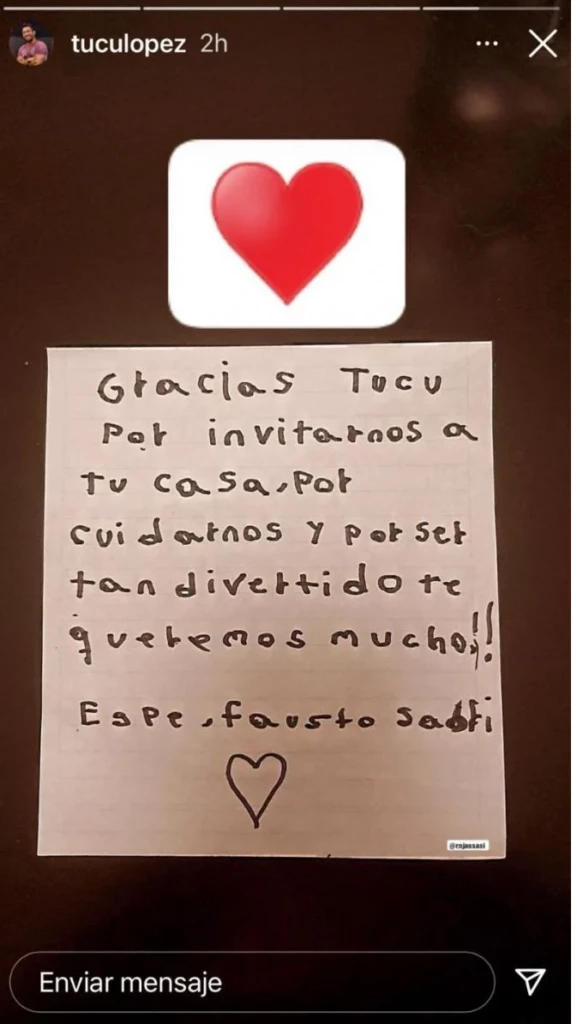 tuculopez 2h
Gracias Tucu
Por invitarnos a
tu casa, por
cuidarnos y por ser
tan divertido te
queremos mucho!!
Espe, fausto Sabri
@rojassasi
Enviar mensaje